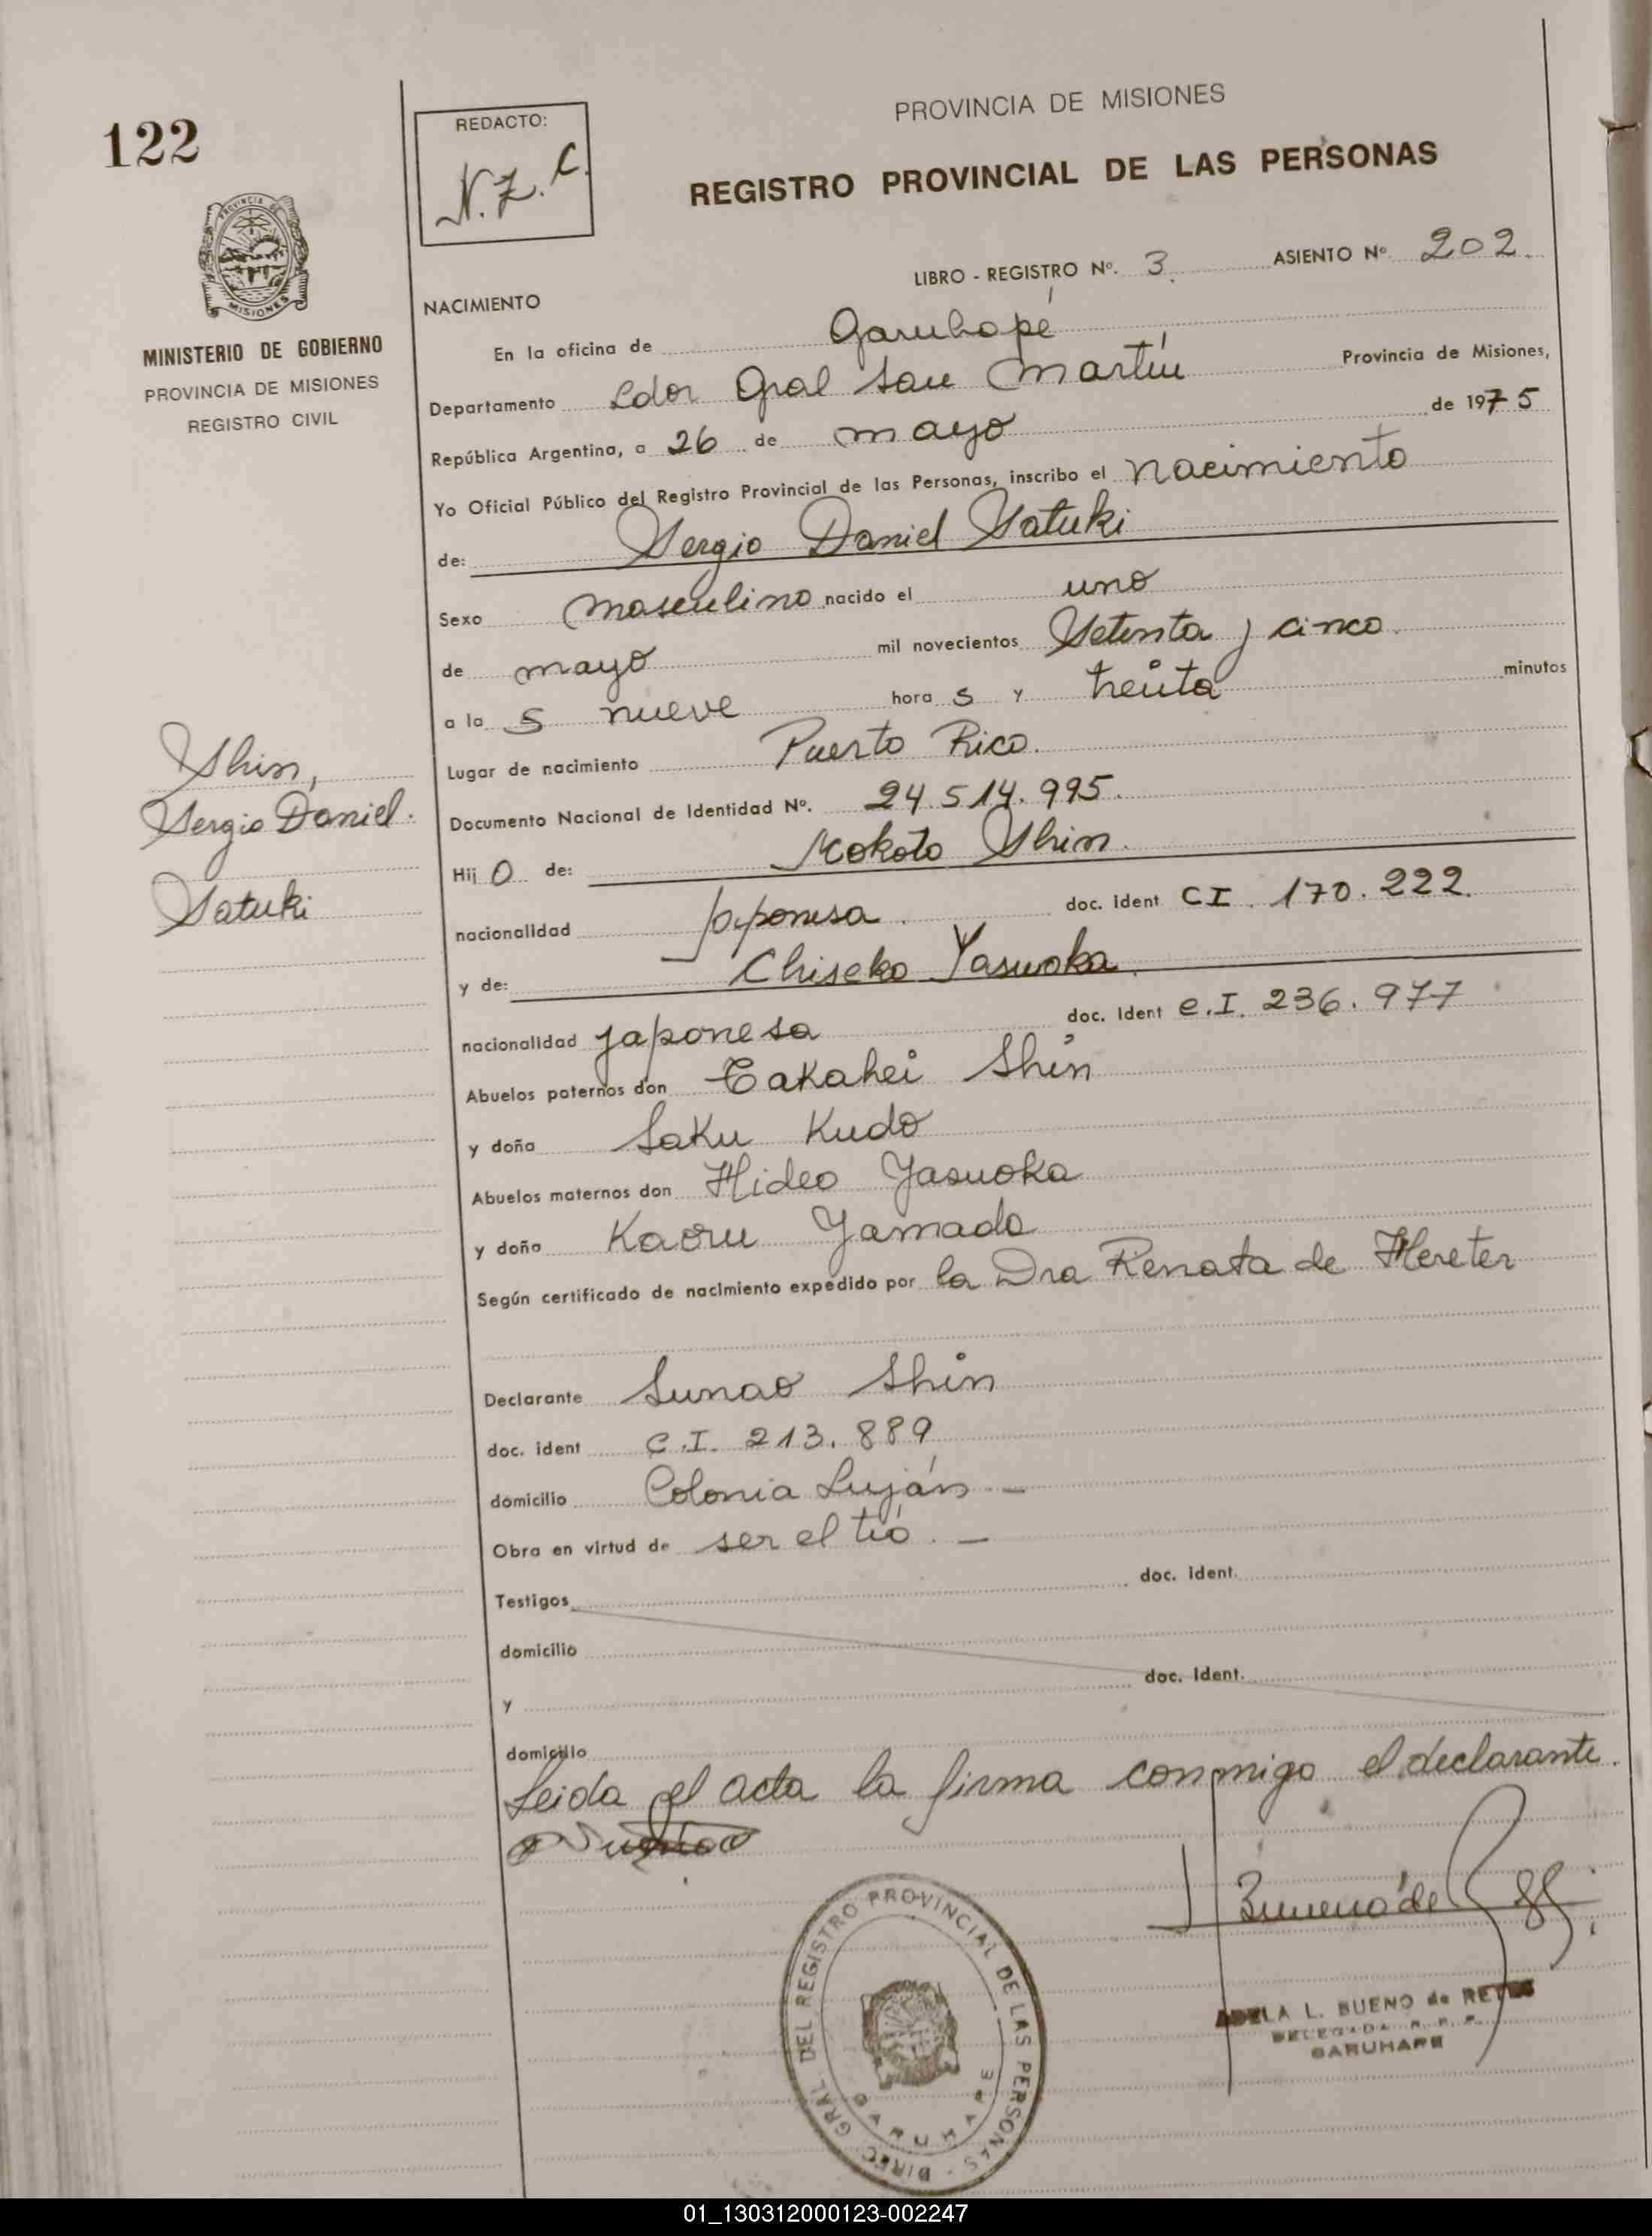 122
REDACTO:
N.Z.C.
PROVINCIA DE MISIONES
REGISTRO PROVINCIAL DE LAS PERSONAS
LIBRO - REGISTRO Nº. 3 ASIENTO Nº 202
PROVINCIA DE
MISIONES
MINISTERIO DE GOBIERNO
PROVINCIA DE MISIONES
REGISTRO CIVIL
NACIMIENTO
En la oficina de Garuhapé
Departamento Ldor Gral San Martín Provincia de Misiones,
República Argentina, a 26 de mayo de 1975
Yo Oficial Público del Registro Provincial de las Personas, inscribo el nacimiento
de: Sergio Daniel Satuki
Sexo masculino nacido el uno
de mayo mil novecientos Setenta y cinco
a la s nueve hora s y treinta minutos
Lugar de nacimiento Puerto Rico.
Documento Nacional de Identidad Nº. 24.514.995.
Hij o de: Mokoto Shin.
nacionalidad Japonesa. doc. ident CI. 170.222.
y de: Chiseko Yasuoka.
nacionalidad japonesa doc. ident C.I. 236.977
Abuelos paternos don Takahei Shin
y doña Saku Kudo
Abuelos maternos don Hideo Yasuoka
y doña Kaoru Yamada
Según certificado de nacimiento expedido por la Dra Renata de Hereter
Declarante Sunao Shin
doc. ident C.I. 213.889
domicilio Colonia Luján -
Obra en virtud de ser el tío. -
Testigos doc. ident.
domicilio
y doc. ident.
domicilio
Leida el acta la firma conmigo el declarante.
Shin,
Sergio Daniel.
Satuki
DIREC. GRAL. DEL REGISTRO PROVINCIAL DE LAS PERSONAS
GARUHAPE
ADELA L. BUENO de REYES
DELEGADA R. P. P.
GARUHAPE
01_130312000123-002247